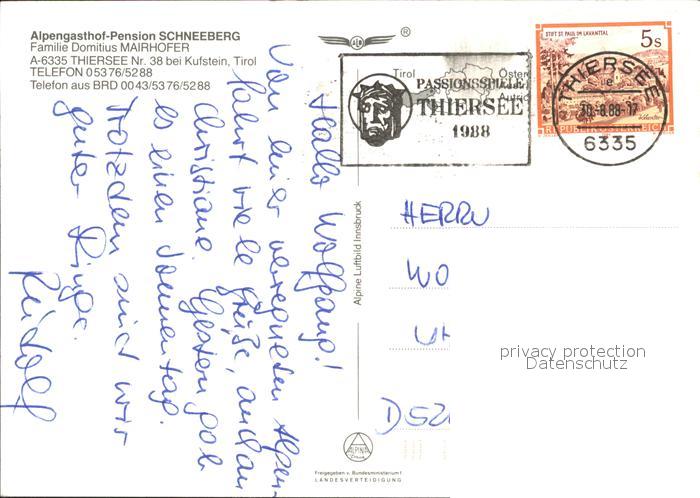 Alpengasthof-Pension SCHNEEBERG
Familie Domitius MAIRHOFER
A-6335 THIERSEE Nr. 38 bei Kufstein, Tirol
TELEFON 05376/5288
Telefon aus BRD 0043/5376/5288
Hallo Wolfgang!
Von hier verregneten Alpen-
fahrt viele Grüße, auch an
Christiane. Gestern gab
es einen Sonnentag.
Trotzdem sind wir
guter Dinge.
Rudolf
Alpine Luftbild Innsbruck
ALPINE
Freigegeben v. Bundesministerium f.
LANDESVERTEIDIGUNG
Tirol
PASSIONSSPIELE
THIERSEE
1988
STIFT ST. PAUL IM LAVANTTAL
5s
REPUBLIK ÖSTERREICH
THIERSEE
30.-8.88-17
6335
HERRN
WO
D52
privacy protection
Datenschutz